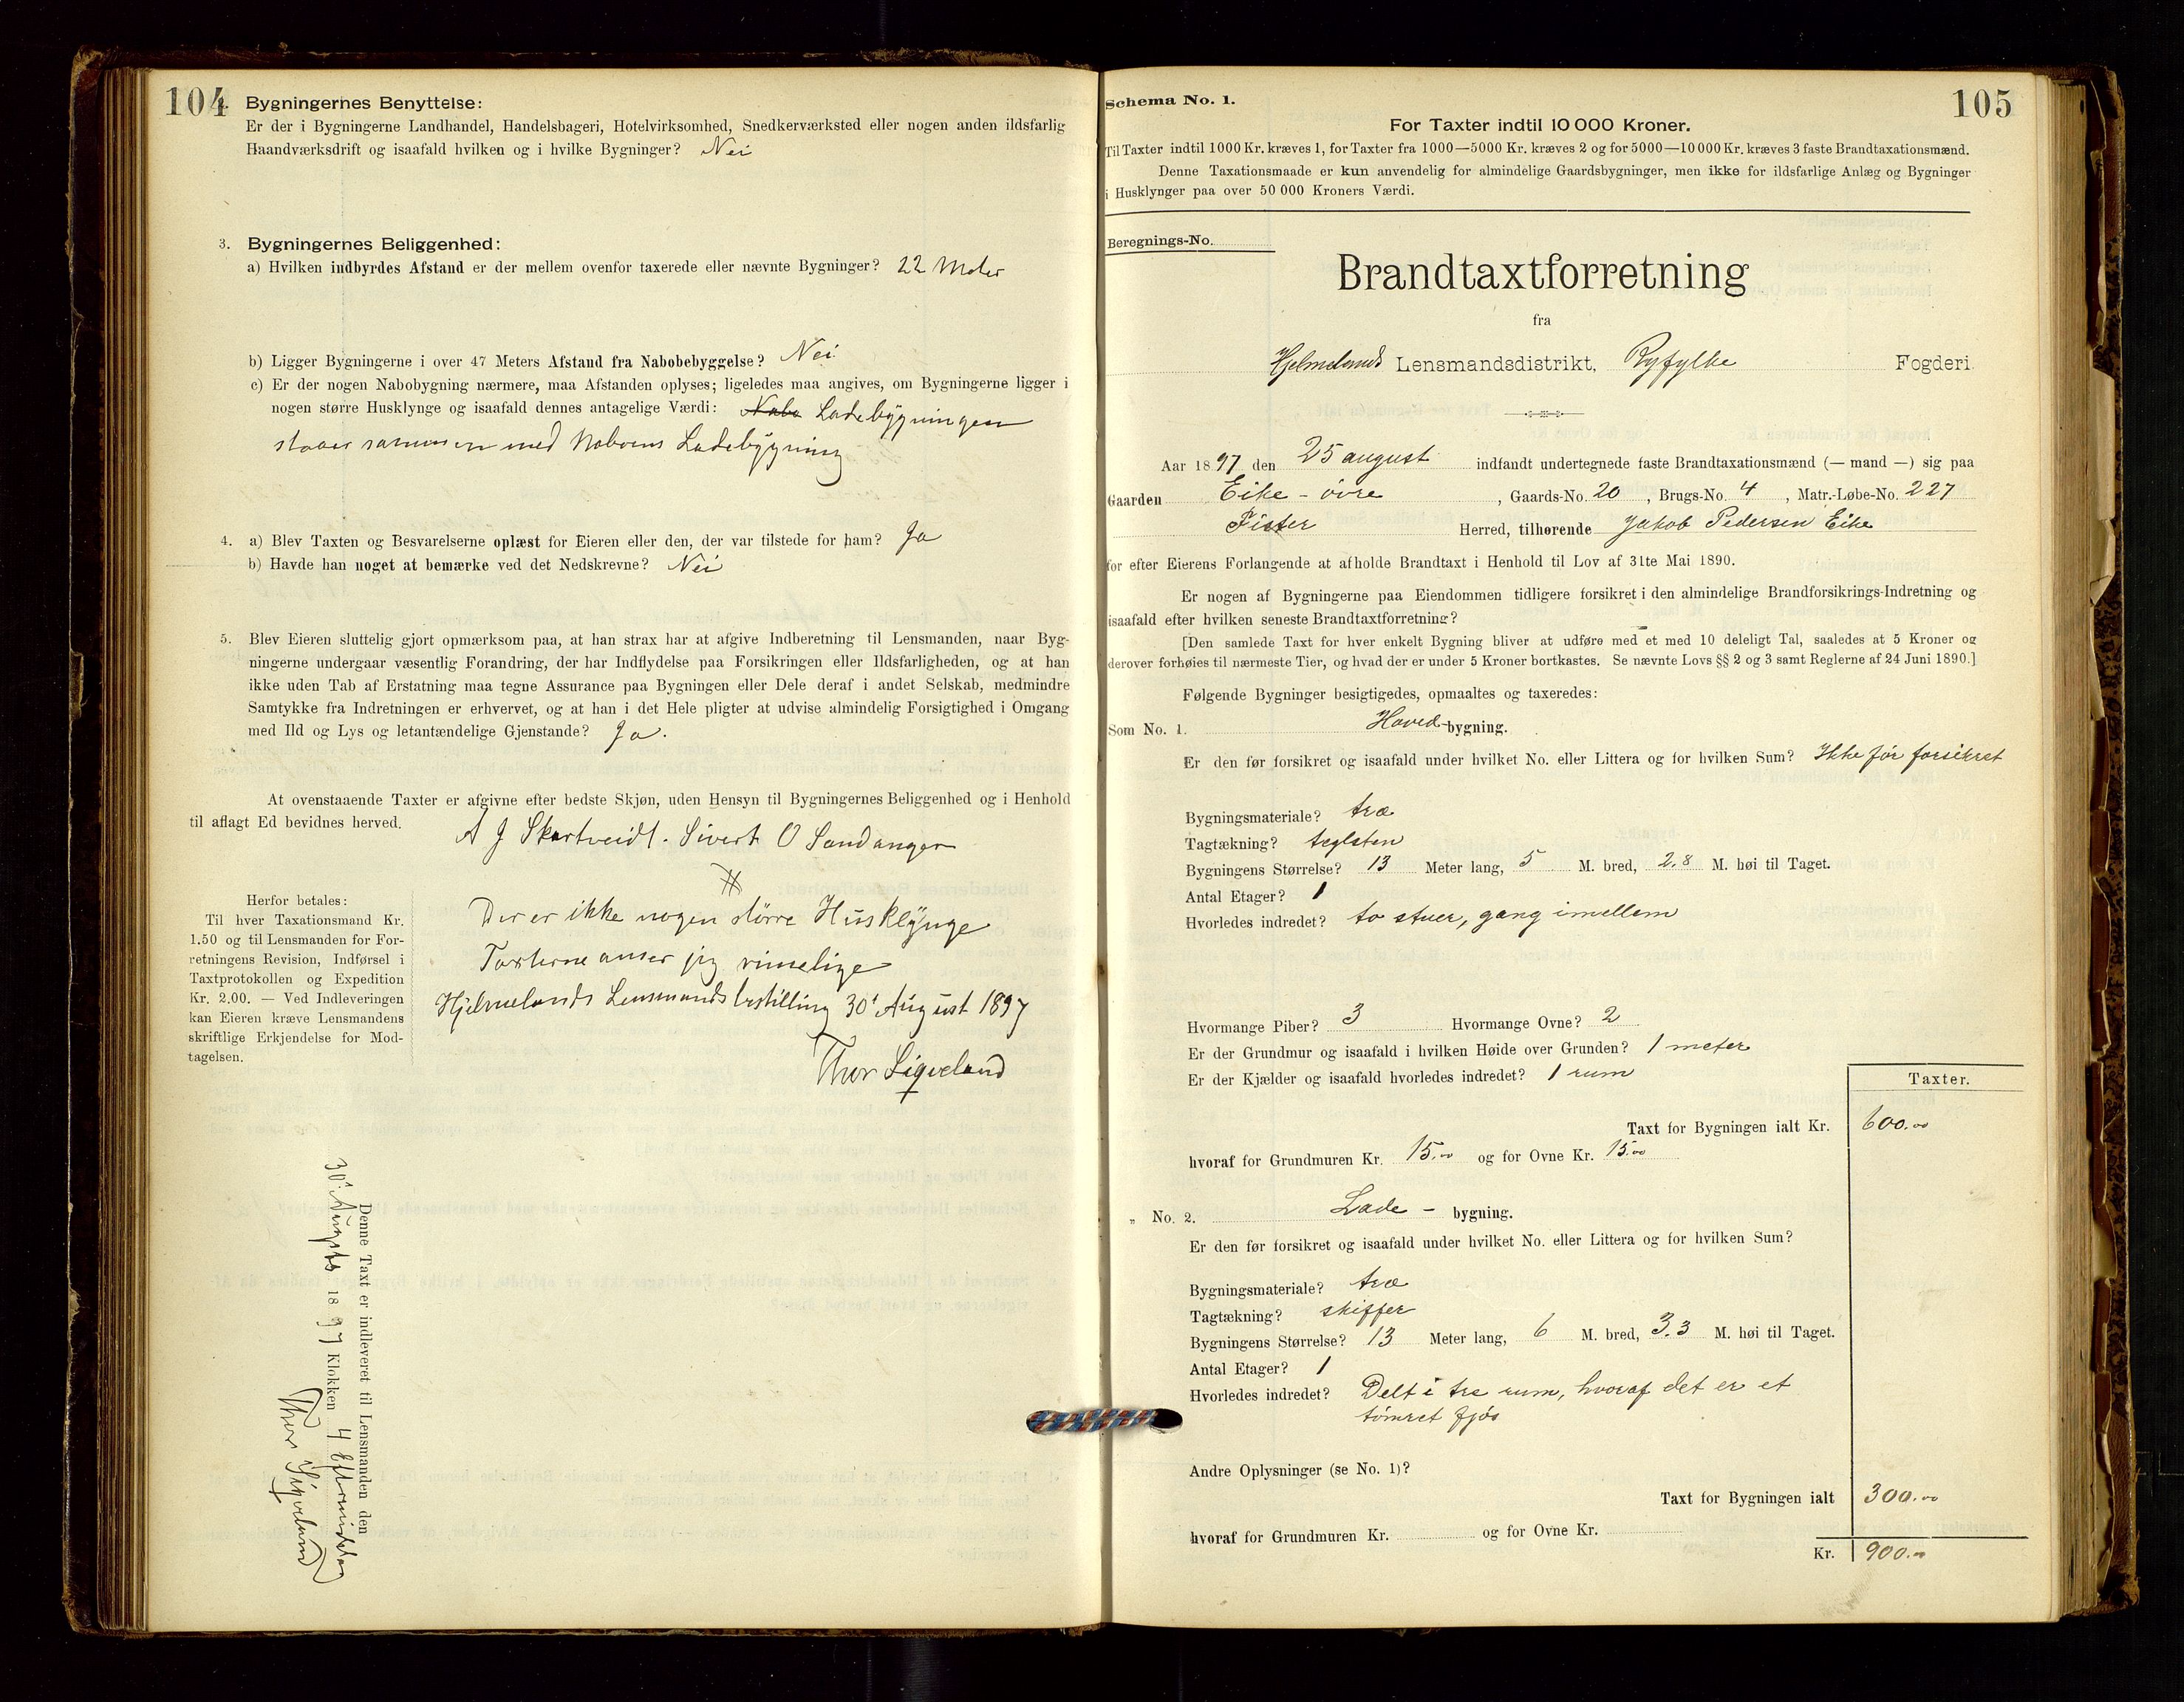 104
2. Bygningernes Benyttelse:
Er der i Bygningerne Landhandel, Handelsbageri, Hotelvirksomhed, Snedkerværksted eller nogen anden ildsfarlig
Haandværksdrift og isaafald hvilken og i hvilke Bygninger? Nei
3. Bygningernes Beliggenhed:
a) Hvilken indbyrdes Afstand er der mellem ovenfor taxerede eller nævnte Bygninger? 22 Meter
b) Ligger Bygningerne i over 47 Meters Afstand fra Nabobebyggelse? Nei
c) Er der nogen Nabobygning nærmere, maa Afstanden oplyses; ligeledes maa angives, om Bygningerne ligger i
nogen større Husklynge og isaafald dennes antagelige Værdi: Nabo Ladebygningen
staaer sammen med Naboens Ladebygning
4. a) Blev Taxten og Besvarelserne oplæst for Eieren eller den, der var tilstede for ham? Ja
b) Havde han noget at bemærke ved det Nedskrevne? Nei
5. Blev Eieren sluttelig gjort opmærksom paa, at han strax har at afgive Indberetning til Lensmanden, naar Byg-
ningerne undergaar væsentlig Forandring, der har Indflydelse paa Forsikringen eller Ildsfarligheden, og at han
ikke uden Tab af Erstatning maa tegne Assurance paa Bygningen eller Dele deraf i andet Selskab, medmindre
Samtykke fra Indretningen er erhvervet, og at han i det Hele pligter at udvise almindelig Forsigtighed i Omgang
med Ild og Lys og letantændelige Gjenstande? Ja.
At ovenstaaende Taxter er afgivne efter bedste Skjøn, uden Hensyn til Bygningernes Beliggenhed og i Henhold
til aflagt Ed bevidnes herved. A J Skartveidt. Sivert O Sandanger
Herfor betales:
Til hver Taxationsmand Kr.
1.50 og til Lensmanden for For-
retningens Revision, Indførsel i
Taxtprotokollen og Expedition
Kr. 2.00. — Ved Indleveringen
kan Eieren kræve Lensmandens
skriftlige Erkjendelse for Mod-
tagelsen.
Der er ikke nogen större Husklynge
Taxterne anser jeg rimelige
Hjelmelands Lensmandsbestilling 30t August 1897
Thor Sigveland
Denne Taxt er indleveret til Lensmanden den
30t Augusts 1897 Klokken 4 Eftermiddag
Thor Sigveland
Schema No. 1.
105
For Taxter indtil 10 000 Kroner.
Til Taxter indtil 1000 Kr. kræves 1, for Taxter fra 1000—5000 Kr. kræves 2 og for 5000—10 000 Kr. kræves 3 faste Brandtaxationsmænd.
Denne Taxationsmaade er kun anvendelig for almindelige Gaardsbygninger, men ikke for ildsfarlige Anlæg og Bygninger
i Husklynger paa over 50 000 Kroners Værdi.
Beregnings-No.
Brandtaxtforretning
fra
Hjelmelands Lensmandsdistrikt, Ryfylke Fogderi
Aar 1897 den 25 august indfandt undertegnede faste Brandtaxationsmænd (— mand —) sig paa
Gaarden Eike - övre, Gaards-No. 20, Brugs-No. 4, Matr.-Løbe-No. 227
Fister Herred, tilhørende Jakob Pedersen Eike
for efter Eierens Forlangende at afholde Brandtaxt i Henhold til Lov af 31te Mai 1890.
Er nogen af Bygningerne paa Eiendommen tidligere forsikret i den almindelige Brandforsikrings-Indretning og
isaafald efter hvilken seneste Brandtaxtforretning? —
[Den samlede Taxt for hver enkelt Bygning bliver at udføre med et med 10 deleligt Tal, saaledes at 5 Kroner og
derover forhøies til nærmeste Tier, og hvad der er under 5 Kroner bortkastes. Se nævnte Lovs §§ 2 og 3 samt Reglerne af 24 Juni 1890.]
Følgende Bygninger besigtigedes, opmaaltes og taxeredes:
Som No. 1. Hoved-bygning.
Er den før forsikret og isaafald under hvilket No. eller Littera og for hvilken Sum? Ikke för forsikret
Bygningsmateriale? træ
Tagtækning? teglsten
Bygningens Størrelse? 13 Meter lang, 5 M. bred, 2.8 M. høi til Taget.
Antal Etager? 1
Hvorledes indredet? to stuer, gang imellem
Hvormange Piber? 3 Hvormange Ovne? 2
Er der Grundmur og isaafald i hvilken Høide over Grunden? 1 meter
Er der Kjælder og isaafald hvorledes indredet? 1 rum
Taxter.
Taxt for Bygningen ialt Kr. 600.00
hvoraf for Grundmuren Kr. 15.00 og for Ovne Kr. 15.00
„ No. 2. Lade - bygning.
Er den før forsikret og isaafald under hvilket No. eller Littera og for hvilken Sum?
Bygningsmateriale? træ
Tagtækning? skiffer
Bygningens Størrelse? 13 Meter lang, 6 M. bred, 3.3 M. høi til Taget.
Antal Etager? 1
Hvorledes indredet? Delt i tre rum, hvoraf det er et
tömret fjös
Andre Oplysninger (se No. 1)?
Taxt for Bygningen ialt 300.00
hvoraf for Grundmuren Kr. og for Ovne Kr.
Kr. 900.-